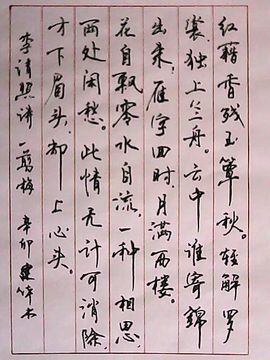 红藕香残玉簟秋。轻解罗
裳独上兰舟。云中谁寄锦
书来,雁字回时,月满西楼。
花自飘零水自流一种相思,
两处闲愁。此情无计可消除,
才下眉头,却上心头。
李清照诗 一剪梅 辛卯 建 书